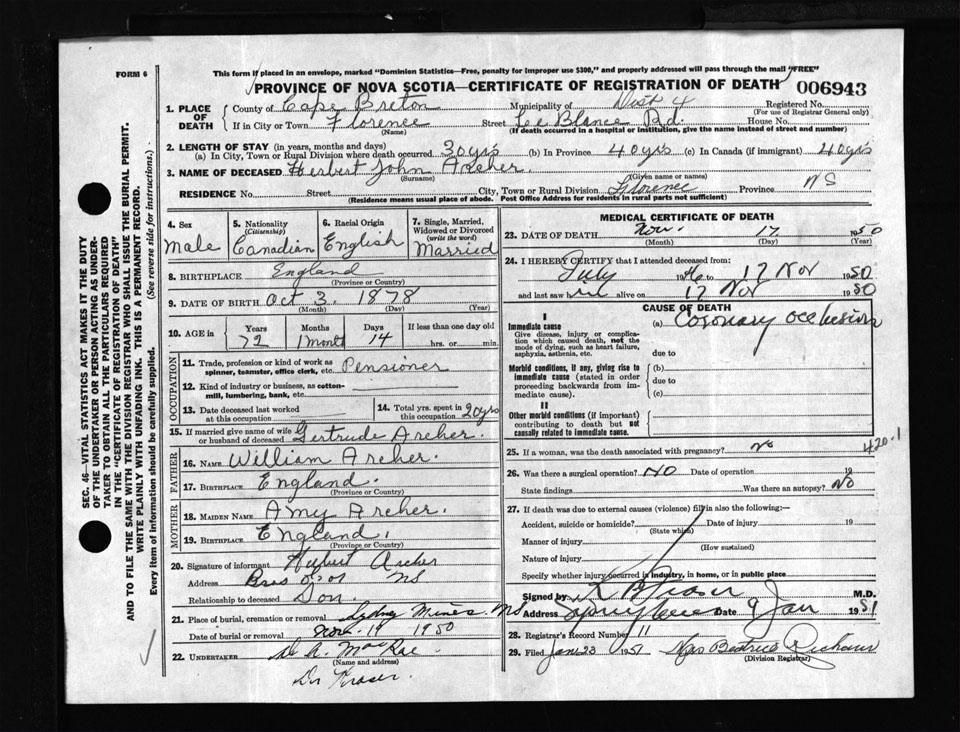 FORM 6
This form if placed in an envelope, marked "Dominion Statistics—Free, penalty for improper use $300," and properly addressed will pass through the mail "FREE"
PROVINCE OF NOVA SCOTIA—CERTIFICATE OF REGISTRATION OF DEATH
006943
1. PLACE OF DEATH County of Cape Breton Municipality of Dist 4 Registered No.
(For use of Registrar General only)
If in City or Town Florence Street Le Blance Rd. House No.
(Name) (If death occurred in a hospital or institution, give the name instead of street and number)
2. LENGTH OF STAY (in years, months and days)
(a) In City, Town or Rural Division where death occurred 30 yrs (b) In Province 40 yrs (c) In Canada (if immigrant) 40 yrs
3. NAME OF DECEASED Herbert John Archer.
(Surname) (Given name or names)
RESIDENCE No. Street City, Town or Rural Division Florence Province NS
(Residence means usual place of abode. Post Office Address for residents in rural parts not sufficient)
SEC. 46—VITAL STATISTICS ACT MAKES IT THE DUTY
OF THE UNDERTAKER OR PERSON ACTING AS UNDER-
TAKER TO OBTAIN ALL THE PARTICULARS REQUIRED
IN THE "CERTIFICATE OF REGISTRATION OF DEATH"
AND TO FILE THE SAME WITH THE DIVISION REGISTRAR WHO SHALL ISSUE THE BURIAL PERMIT.
WRITE PLAINLY WITH UNFADING INK. THIS IS A PERMANENT RECORD.
Every item of information should be carefully supplied. (See reverse side for instructions.)
4. Sex Male
5. Nationality (Citizenship) Canadian
6. Racial Origin English
7. Single, Married, Widowed or Divorced (write the word) Married
8. BIRTHPLACE England
(Province or Country)
9. DATE OF BIRTH Oct 3. 1878
(Month) (Day) (Year)
10. AGE in Years 72 Months 1 month Days 14 If less than one day old hrs. or min.
OCCUPATION
11. Trade, profession or kind of work as spinner, teamster, office clerk, etc. Pensioner
12. Kind of industry or business, as cotton-mill, lumbering, bank, etc.
13. Date deceased last worked at this occupation
14. Total yrs. spent in this occupation 20 yrs
15. If married give name of wife or husband of deceased Gertrude Archer.
FATHER
16. NAME William Archer.
17. BIRTHPLACE England.
(Province or Country)
MOTHER
18. MAIDEN NAME Amy Archer.
19. BIRTHPLACE England.
(Province or Country)
20. Signature of informant Hubert Archer
Address Bras d'or NS
Relationship to deceased Son.
21. Place of burial, cremation or removal Sydney Mines. NS
Date of burial or removal Nov. 19 1950
22. UNDERTAKER A. MacRae
(Name and address)
Dr Fraser.
MEDICAL CERTIFICATE OF DEATH
23. DATE OF DEATH Nov. 17 1950
(Month) (Day) (Year)
24. I HEREBY CERTIFY that I attended deceased from:
July 1946 to 17 Nov 1950
and last saw him alive on 17 Nov 1950
CAUSE OF DEATH
I
Immediate cause
Give disease, injury or complication which caused death, not the mode of dying, such as heart failure, asphyxia, asthenia, etc.
(a) Coronary occlusion
due to
Morbid conditions, if any, giving rise to immediate cause (stated in order proceeding backwards from immediate cause).
(b)
due to
(c)
II
Other morbid conditions (if important) contributing to death but not causally related to immediate cause.
25. If a woman, was the death associated with pregnancy? No
420.1
26. Was there a surgical operation? No Date of operation 19
State findings Was there an autopsy? No
27. If death was due to external causes (violence) fill in also the following:—
Accident, suicide or homicide? Date of injury 19
(State which)
Manner of injury
(How sustained)
Nature of injury
Specify whether injury occurred in industry, in home, or in public place
Signed by Fraser M.D.
Address Date 9 Jan 1951
28. Registrar's Record Number 11
29. Filed Jan 23 1951 Mrs Beatrice
(Division Registrar)